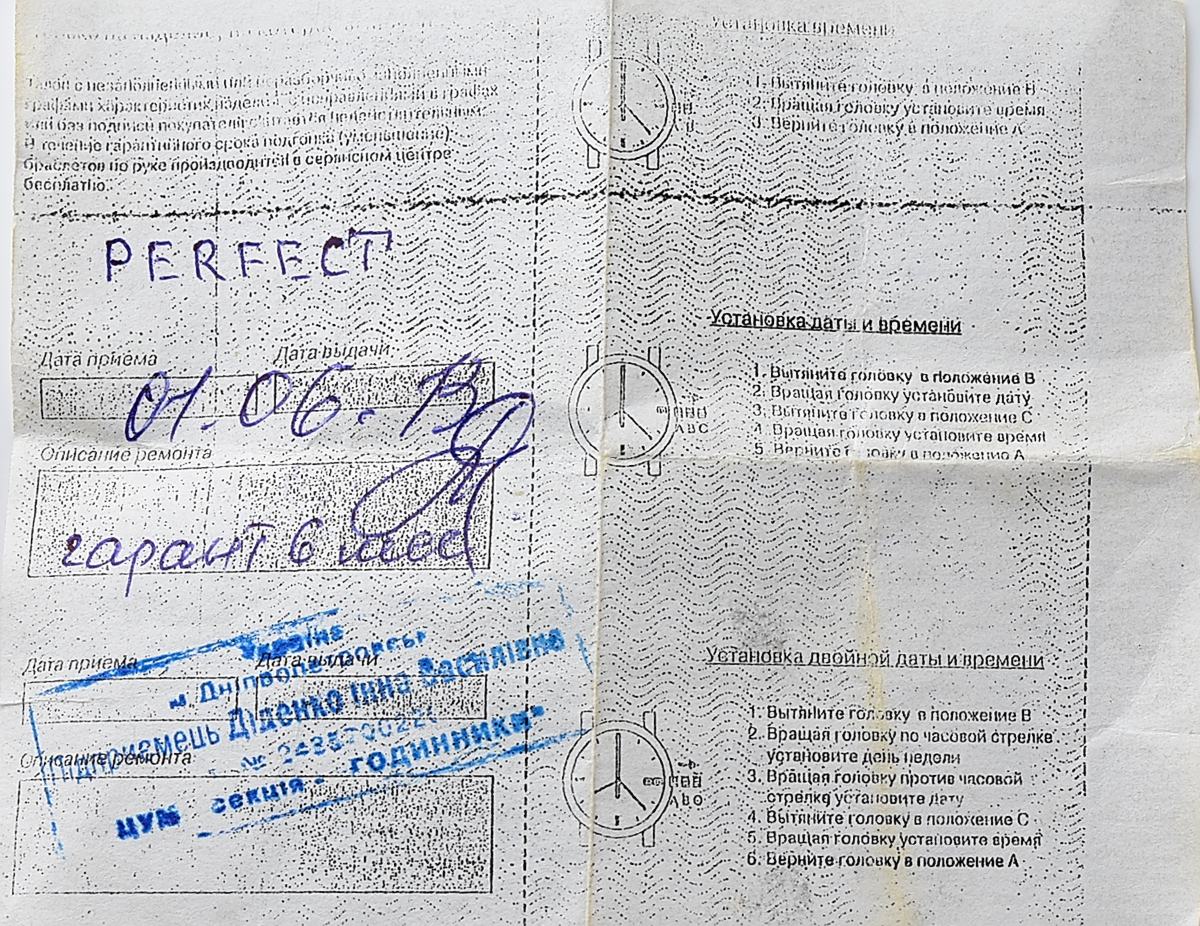 Талон с незаполненными или неразборчиво заполненными
графами характеристик изделия, с исправлениями в графах
или без подписи покупателя считается недействительным.
В течение гарантийного срока подгонка (уменьшение)
браслетов по руке производится в сервисном центре
бесплатно.
PERFECT
Дата приема Дата выдачи
01.06.13
Описание ремонта
гарант 6 мес
Дата приема Дата выдачи
Описание ремонта
Україна
м. Дніпропетровськ
Підприємець Діденко Інна Василівна
№
ЦУМ секція - годинники"
Установка времени
1. Вытяните головку в положение В
2. Вращая головку установите время
3. Верните головку в положение А
Установка даты и времени
1. Вытяните головку в положение В
2. Вращая головку установите дату
3. Вытяните головку в положение С
4. Вращая головку установите время
5. Верните головку в положение А
А В С
Установка двойной даты и времени
1. Вытяните головку в положение В
2. Вращая головку по часовой стрелке
установите день недели
3. Вращая головку против часовой
стрелке установите дату
4. Вытяните головку в положение С
5. Вращая головку установите время
6. Верните головку в положение А
А В С